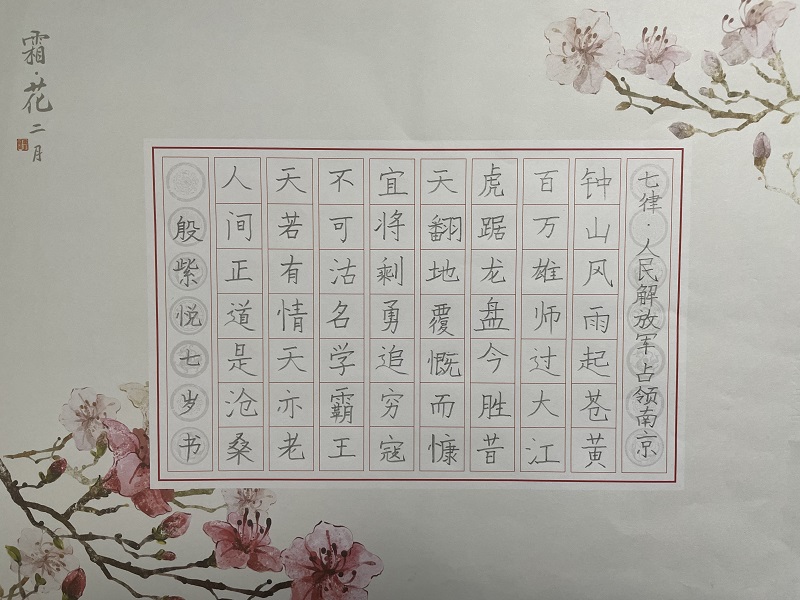 七律·人民解放军占领南京
钟山风雨起苍黄
百万雄师过大江
虎踞龙盘今胜昔
天翻地覆慨而慷
宜将剩勇追穷寇
不可沽名学霸王
天若有情天亦老
人间正道是沧桑
殷紫悦七岁书
霜·花
二月